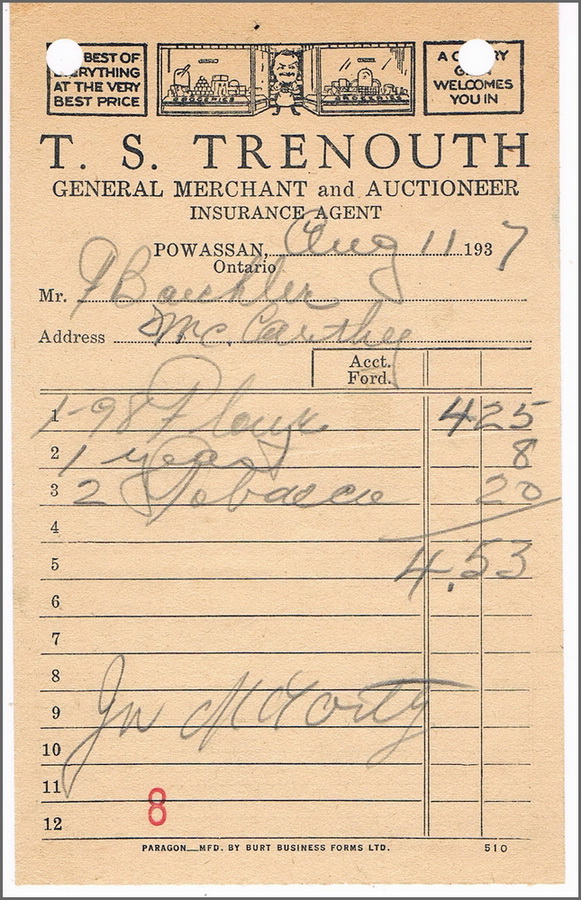 BEST OF
EVERYTHING
AT THE VERY
BEST PRICE
A
WELCOMES
YOU IN
GROCERIES
GROCERIES
T. S. TRENOUTH
GENERAL MERCHANT and AUCTIONEER
INSURANCE AGENT
POWASSAN, Aug 11 1937
Ontario
Mr.
Address Mc. Carthey
Acct.
Ford.
1 1-98 Flour 4 25
2 1 yeast 8
3 2 Tobacco 20
4
5 4.53
6
7
8
9
10
11
12
8
PARAGON—MFD. BY BURT BUSINESS FORMS LTD. 510